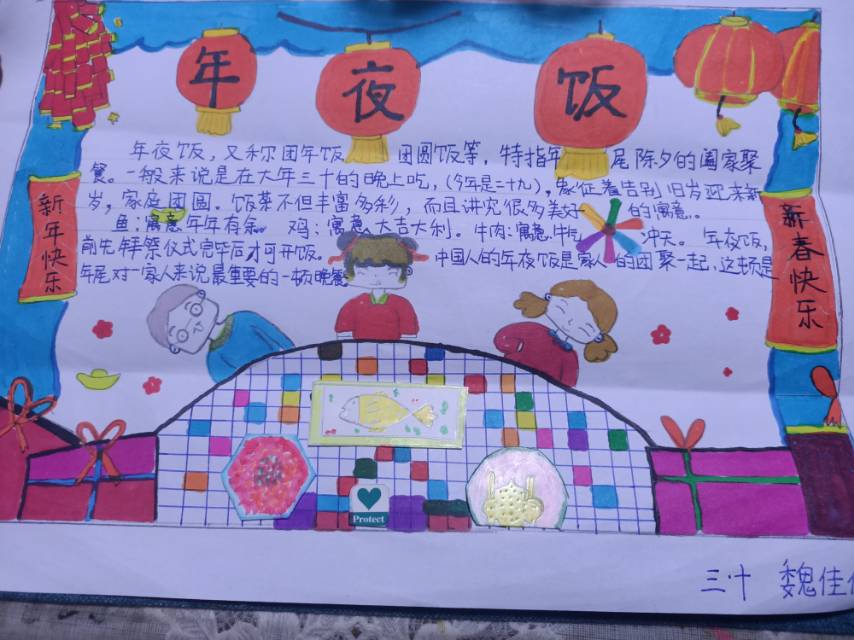 年夜饭
年夜饭,又称团年饭 团圆饭等,特指年 尾除夕的阖家聚
餐。一般来说是在大年三十的晚上吃,(今年是二十九),象征着告别旧岁迎来新
岁,家庭团圆。饭菜不但丰富多彩,而且讲究很多美好 的寓意。
鱼:寓意年年有余。 鸡:寓意大吉大利。牛肉:寓意牛气 冲天。 年夜饭,
前先 拜祭仪式完毕后才可开饭。 中国人的年夜饭是家人的团聚一起,这顿是
年尾对一家人来说最重要的一顿晚餐
新年快乐
新春快乐
Protect
三·十 魏佳